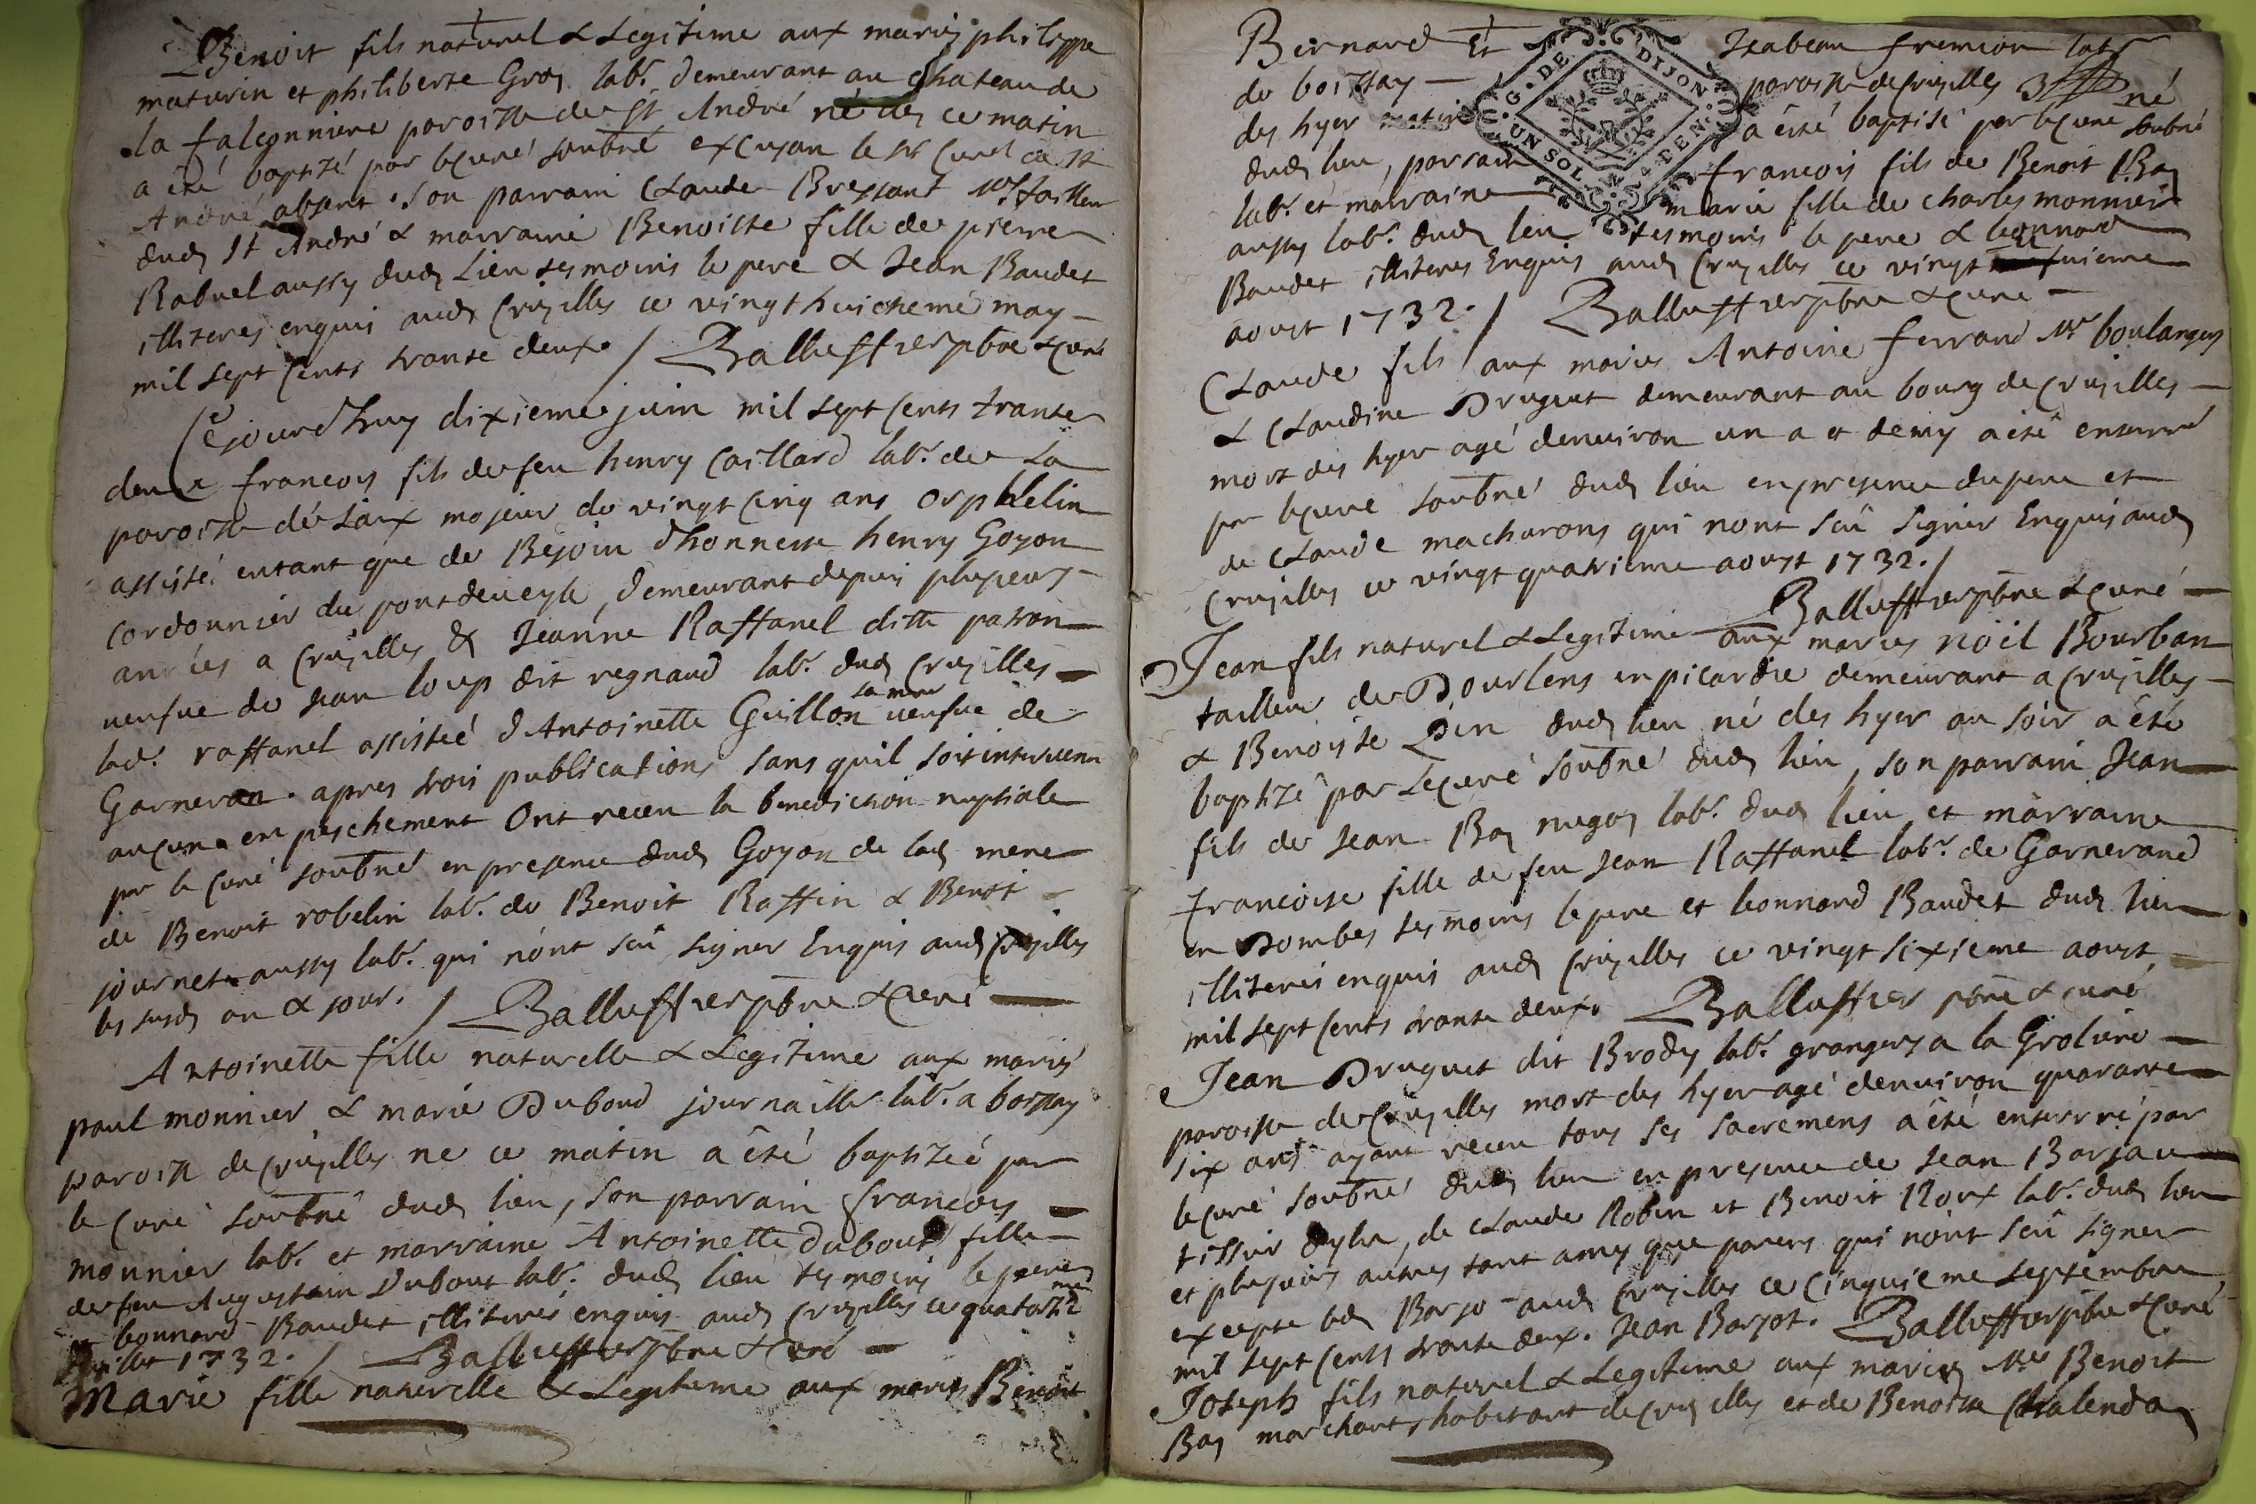 Benoit fils naturel & Legitime aux mariés philippe
maturin et philiberte Gros lab.r demeurant au Chateau de
la falconniere paroisse de St André né dès ce matin
a été baptizé par le Curé soubné excusan le sr Curé de St
André absent. Son parrain Claude Bressant
dud St André & marraine Benoiste fille de pierre
Rabuel aussy dud Lieu tesmoins le pere & Jean Baudet
illiteres enquis aud Crusilles ce vingt huictieme may
mil sept Cents trante deux. / Balluffier pbre & Curé
Cejourdhuy dixieme juin mil sept Cents trante
deux francois fils de feu henry Caillard lab.r de La
paroisse de majeur de vingt Cinq ans orphelin
assisté entant que de Besoin dhonneste henry Goyon
Cordonnier du pontdeveyle, demeurant depuis plusieurs
années a Crusilles & Jeanne Raffanel ditte patron
veufve de Jean loup dit regnaud lab.r dud Crusilles
lad. raffanel assistée d'Antoinette Guillon sa mere veufve de
Garneran. apres trois publications sans quil soit intervenu
aucune empeschement Ont receu la benediction nuptiale
par le Curé soubné en presence dud Goyon de lad mere
de Benoit robelin lab.r de Benoit Raffin & Benoit
journet aussy lab.r qui nont scû signer Enquis aud Crusilles
les susd an & jour. / Balluffier pbre & Curé
Antoinette fille naturelle & Legitime aux mariés
paul monnier & marie Duboud lab.r a boissay
paroisse de Crusilles né ce matin a êté baptizée par
le Curé soubné dud lieu, son parrain francois
monnier lab.r et marraine Antoinette dubout fille
de feu Augustain Dubout lab.r dud lieu tesmoins le pere
& leonnard Baudet illiteres enquis aud Crusilles ce quatorzieme
juillet 1732. / Balluffier pbre & Curé
Marie fille naturelle & Legitime aux mariés Benoit
Bernard Et Isabeau fremion lab.r
de boissay paroisse de Crusilles né
des hyer matin a êté baptisé par le Curé soubné
dud lieu, parrain francois fils de Benoit Bas
lab.r et marraine marie fille de Charles monnier
aussy lab.r dud lieu tesmoins le pere & leonnard
Baudet illiteres Enquis aud Crusilles ce vingt
aoust 1732. / Balluffier pbre & Curé
Claude fils aux mariés Antoine ferrand Mr boulanger
& Claudine Druguet demeurant au bourg de Crusilles
mort des hyer agé denviron un a et demy a été enterré
par le Curé soubné dud lieu en presence du pere et
de Claude macharons qui nont scû signer Enquis aud
Crusilles ce vingt quatrieme aoust 1732. /
Balluffier pbre & Curé
Jean fils naturel & Legitime aux mariés noël Bourban
tailleur de Dourlens en picardie demeurant a Crusilles
& Benoiste Pin dud lieu né des hyer au soir a êté
baptizé par Le Curé soubné dud lieu, son parrain Jean
fils de Jean Bas nugos lab.r dud lieu et marraine
francoise fille de feu Jean Raffanel lab.r de Garnerand
en Dombes tesmoins le pere et leonnard Baudet dud lieu
illiterés enquis aud Crusilles ce vingt sixieme aoust
mil sept Cents trante deux. Balluffier pbre & curé
Jean Druguet dit Brody lab.r granger a la Groliere
paroisse de Crusilles mort des hyer agé denviron quarante
six ans ayant receu tous ses sacremens a êté enterré par
le Curé soubné dud lieu en presence de Jean Barjau
tissier de Claude Robin et Benoit Roux lab.r dud lieu
et plusieurs autres tant amys que parens qui nont scû signer
excepté led Barjo aud Crusilles ce Cinquieme septembre
mil sept Cents trante deux. Jean Barjot. Balluffier pbre & Curé
Joseph fils naturel & Legitime aux mariés Mr Benoit
Bas marchant, habitant de Crusilles et de Benoiste Chalendas
G. DE DIJON
UN SOL. 4 DEN.